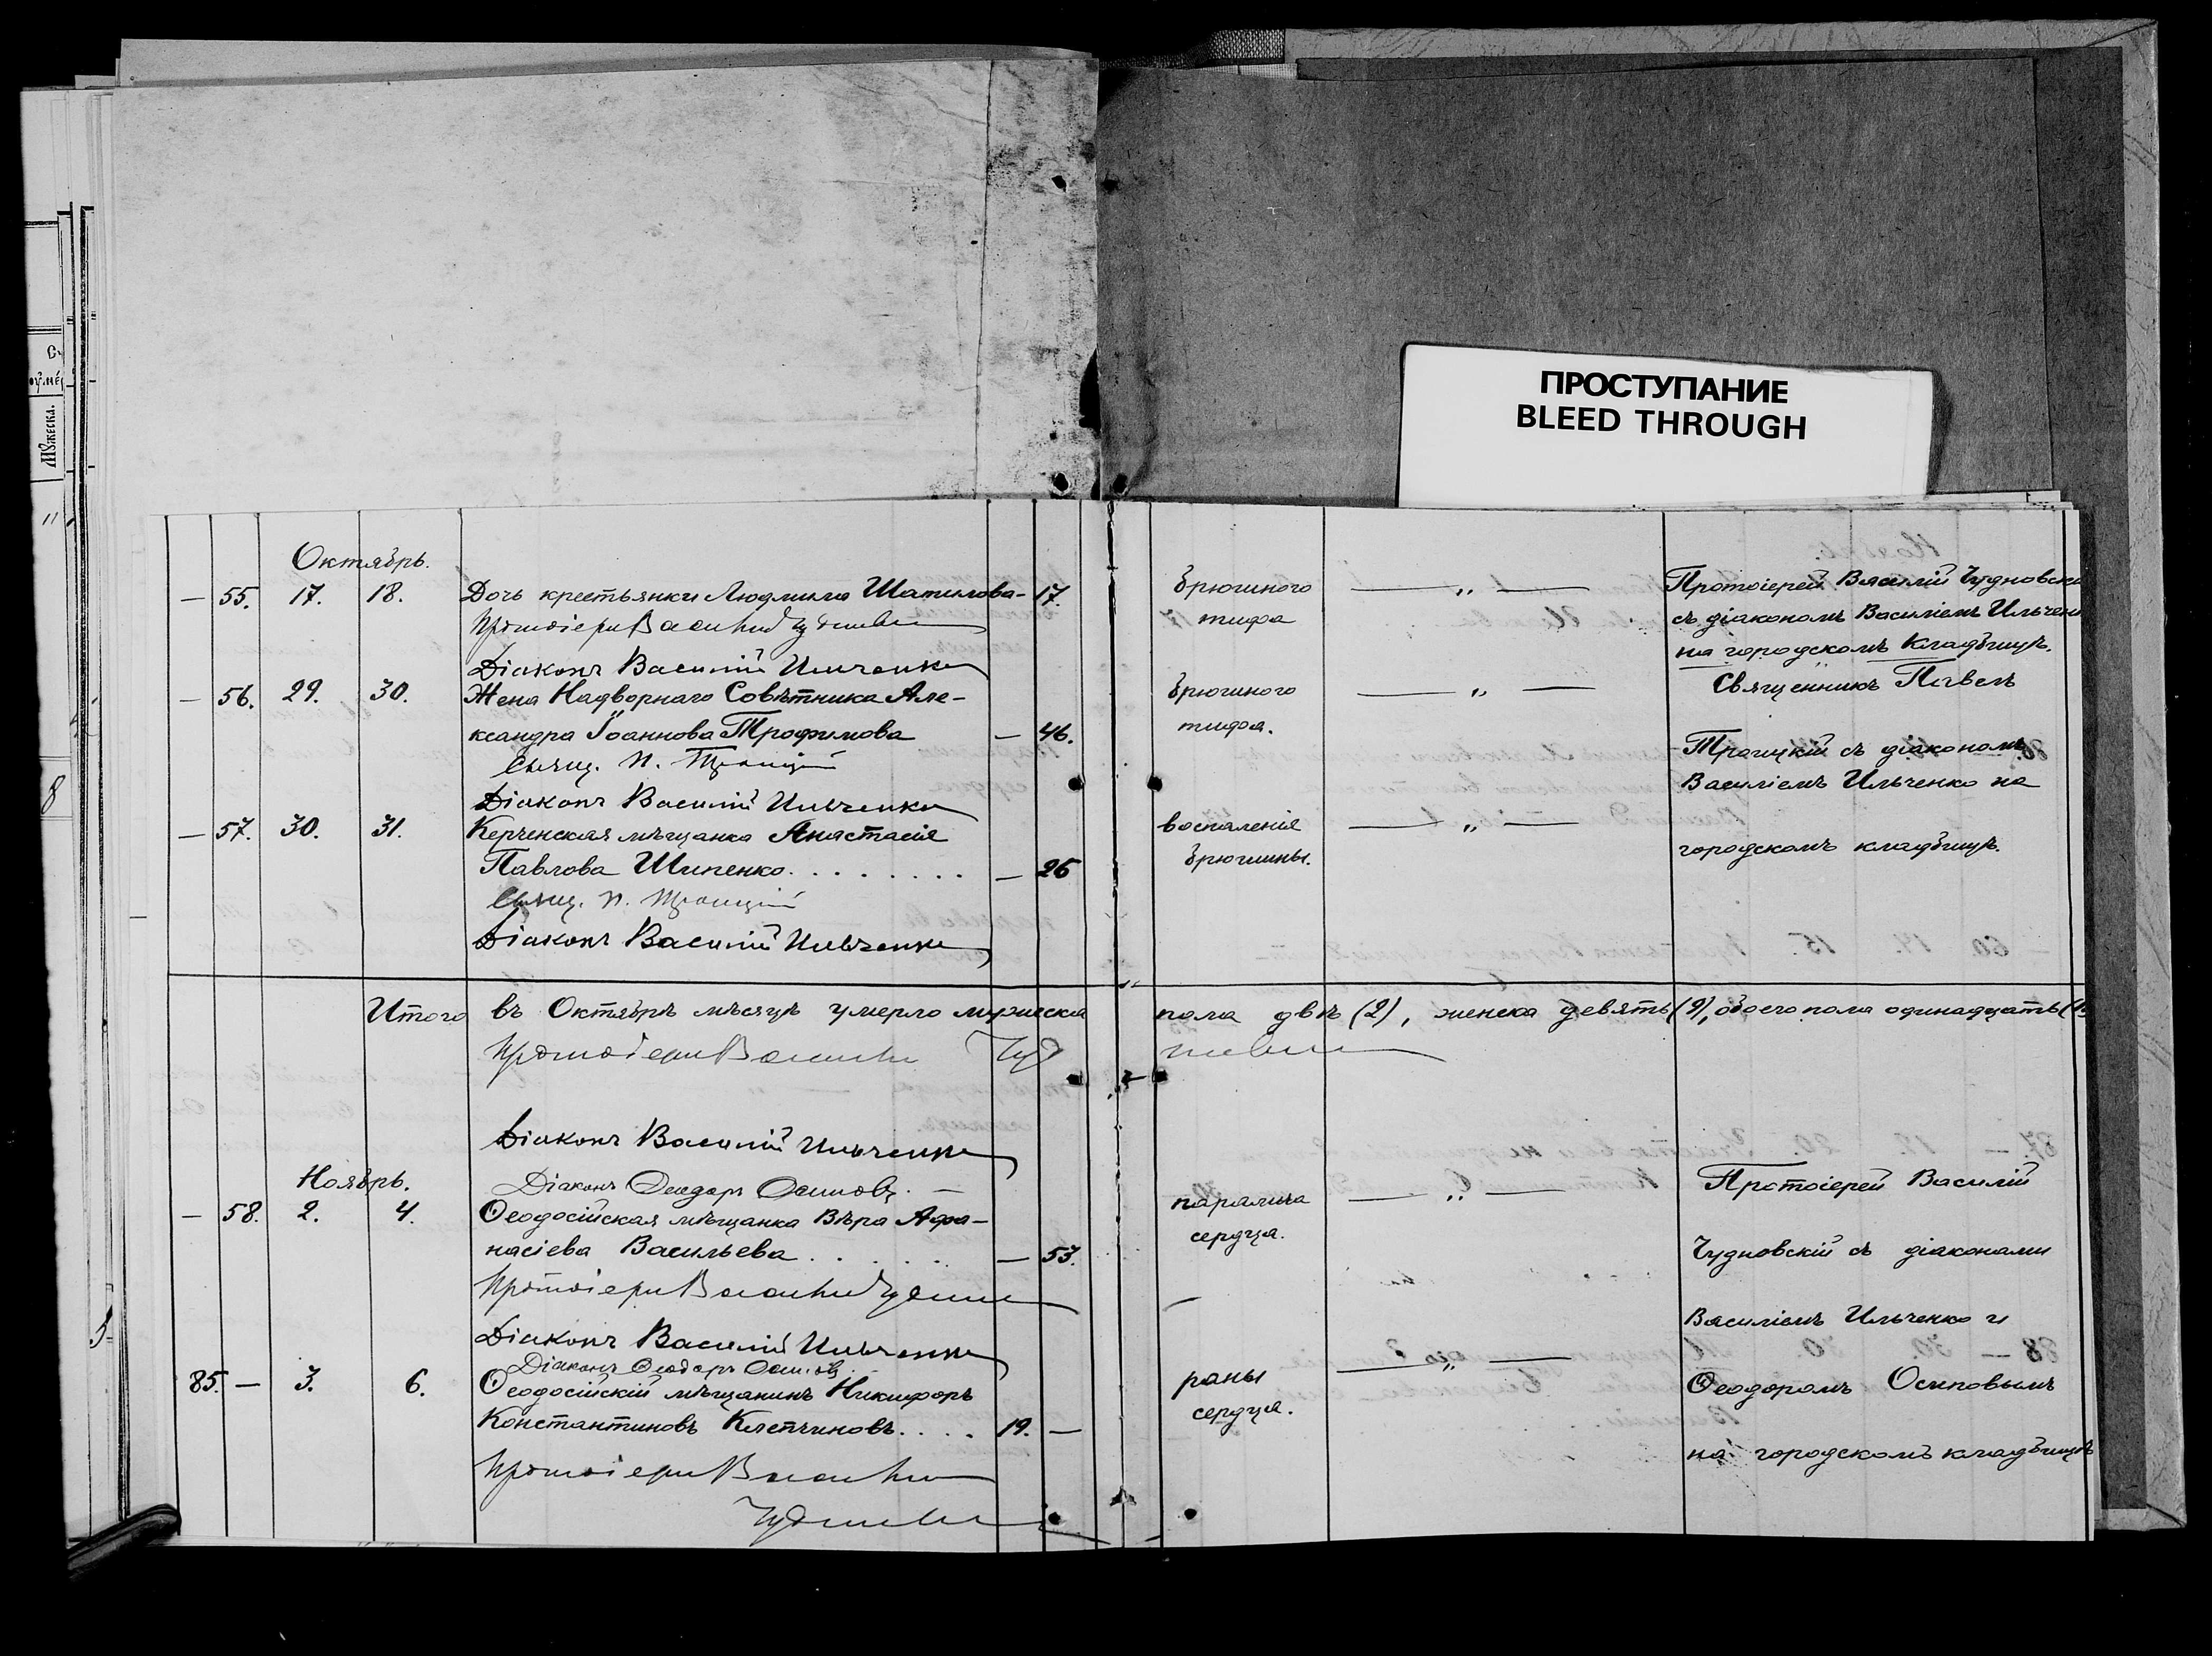 ПРОСТУПАНИЕ
BLEED THROUGH
Октябрь.
— 55. 17. 18. Дочь крестьянки Людмила Шапилова — 17.
Протоіерей Василій Чудновскій
Діаконъ Василій Ильченко
— 56. 29. 30. Жена Надворнаго Совѣтника Але-
ксандра Іоаннова Трофимова — 46.
Свящ. П. Троицкій
Діаконъ Василій Ильченко
— 57. 30. 31. Керченская мѣщанка Анастасія
Павлова Шипенко . . . . . . . . — 26
Свящ. П. Троицкій
Діаконъ Василій Ильченко
брюшного
тифа
— „ —
Протоіерей Василій Чудновскі
съ діакономъ Василіемъ Ильчен
на городскомъ кладбищѣ.
брюшного
тифа.
— „ —
Священникъ Павелъ
Троицкій съ діакономъ
Василіемъ Ильченко на
городскомъ кладбищѣ.
воспаленія
брюшины.
— „ —
Итого въ Октябрѣ мѣсяцѣ умерло мужеска пола двѣ (2), женска девять (9), обоего пола одинадцать (11
Протоіерей Василій Чудновскій
Діаконъ Василій Ильченко
Діаконъ Ѳеодоръ Осиповъ. —
Ноябрь.
— 58. 2. 4. Ѳеодосійская мѣщанка Вѣра Афа-
насіева Васильева . . . . . . — 53.
Протоіерей Василій Чудновскій
Діаконъ Василій Ильченко
Діаконъ Ѳеодоръ Осиповъ
85. — 3. 6. Ѳеодосійскій мѣщанинъ Никифоръ
Константиновъ Клепчиновъ. . . . 19. —
Протоіерей Василій
Чудновскій
паралича
сердца.
— „ —
Протоіерей Василій
Чудновскій съ діаконами
Василіемъ Ильченко и
Ѳеодоромъ Осиповымъ
на городскомъ кладбищѣ
раны
сердца.
— „ —